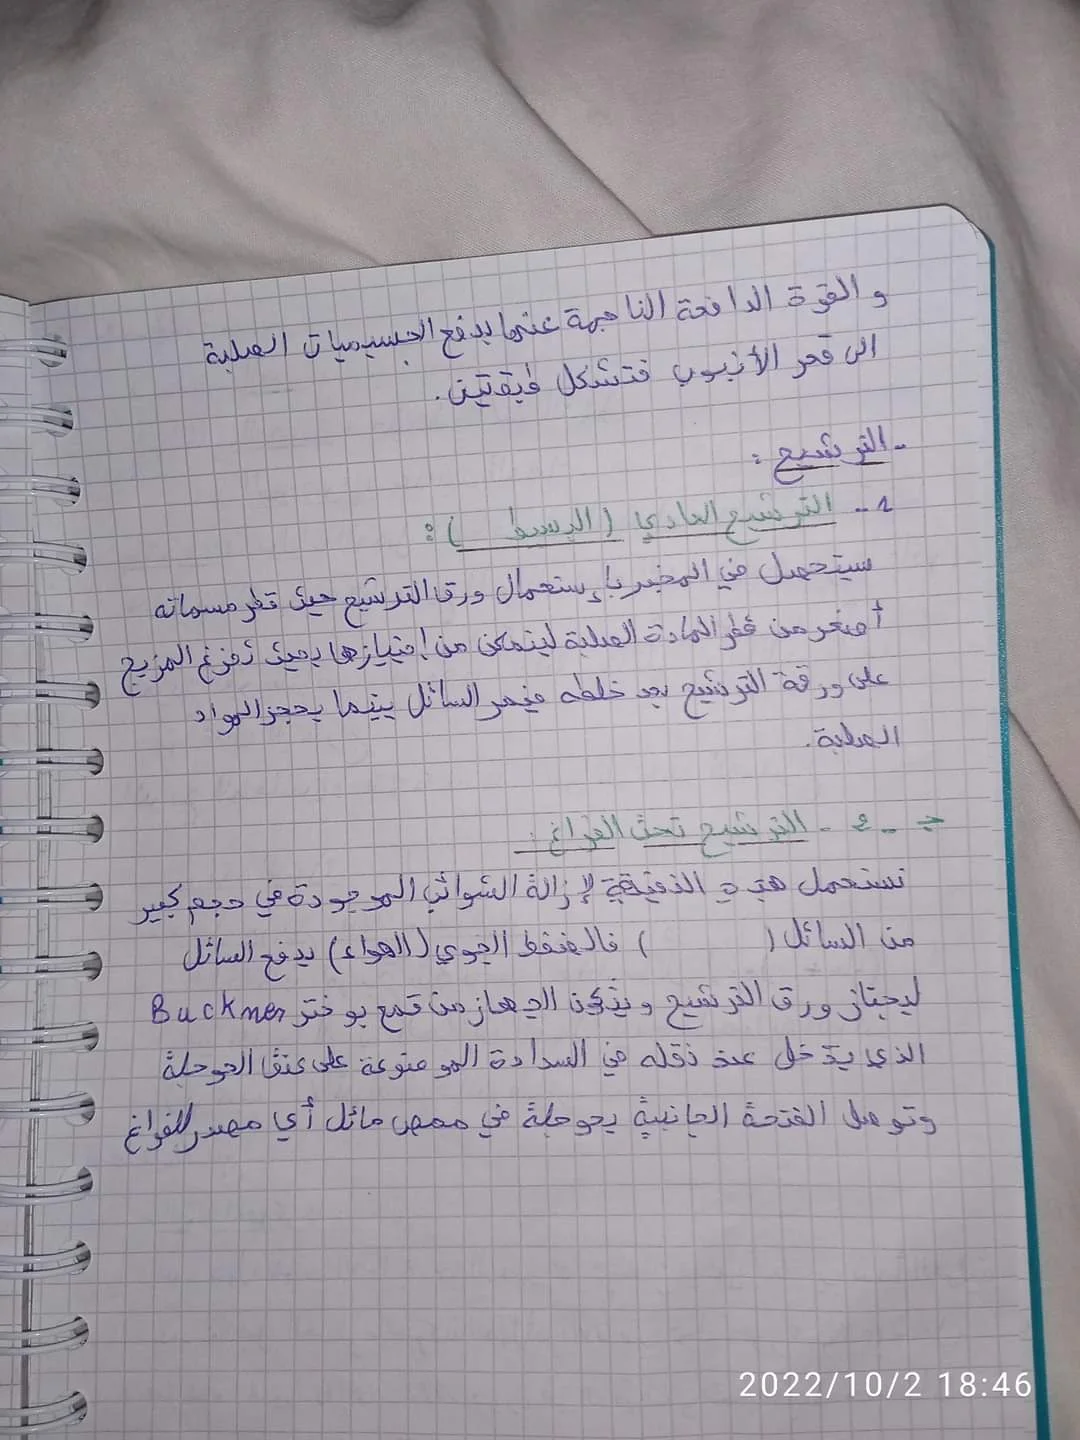 و القوة الدافعة الناجمة عنها يدفع الجسيميات الصلبة
الى قعر الأنبوب فتشكل طبقتين.
- الترشيح :
1 - الترشيح العادي ( البسيط ) :
سيتعمل في المخبر بإستعمال ورق الترشيح حيث قطر مسماته
أصغر من قطر المادة الصلبة ليتمكن من إجتيازها بحيث نفرغ المزيج
على ورقة الترشيح بعد خلطه فيمر السائل بينما يحجز المواد
الصلبة.
ج - 2 - الترشيح تحت الفراغ :
نستعمل هذه التقنية لإزالة الشوائب الموجودة في حجم كبير
من السائل ( ) فالضغط الجوي (الهواء) يدفع السائل
ليجتاز ورق الترشيح ويتكون الجهاز من قمع بوخنر Buckner
الذي يدخل عند نقله في السدادة الموضوعة على عنق الحوجلة
وتوصل الفتحة الجانبية بحوجلة في ممص مائل أي مصدر للفراغ
2022/10/2 18:46